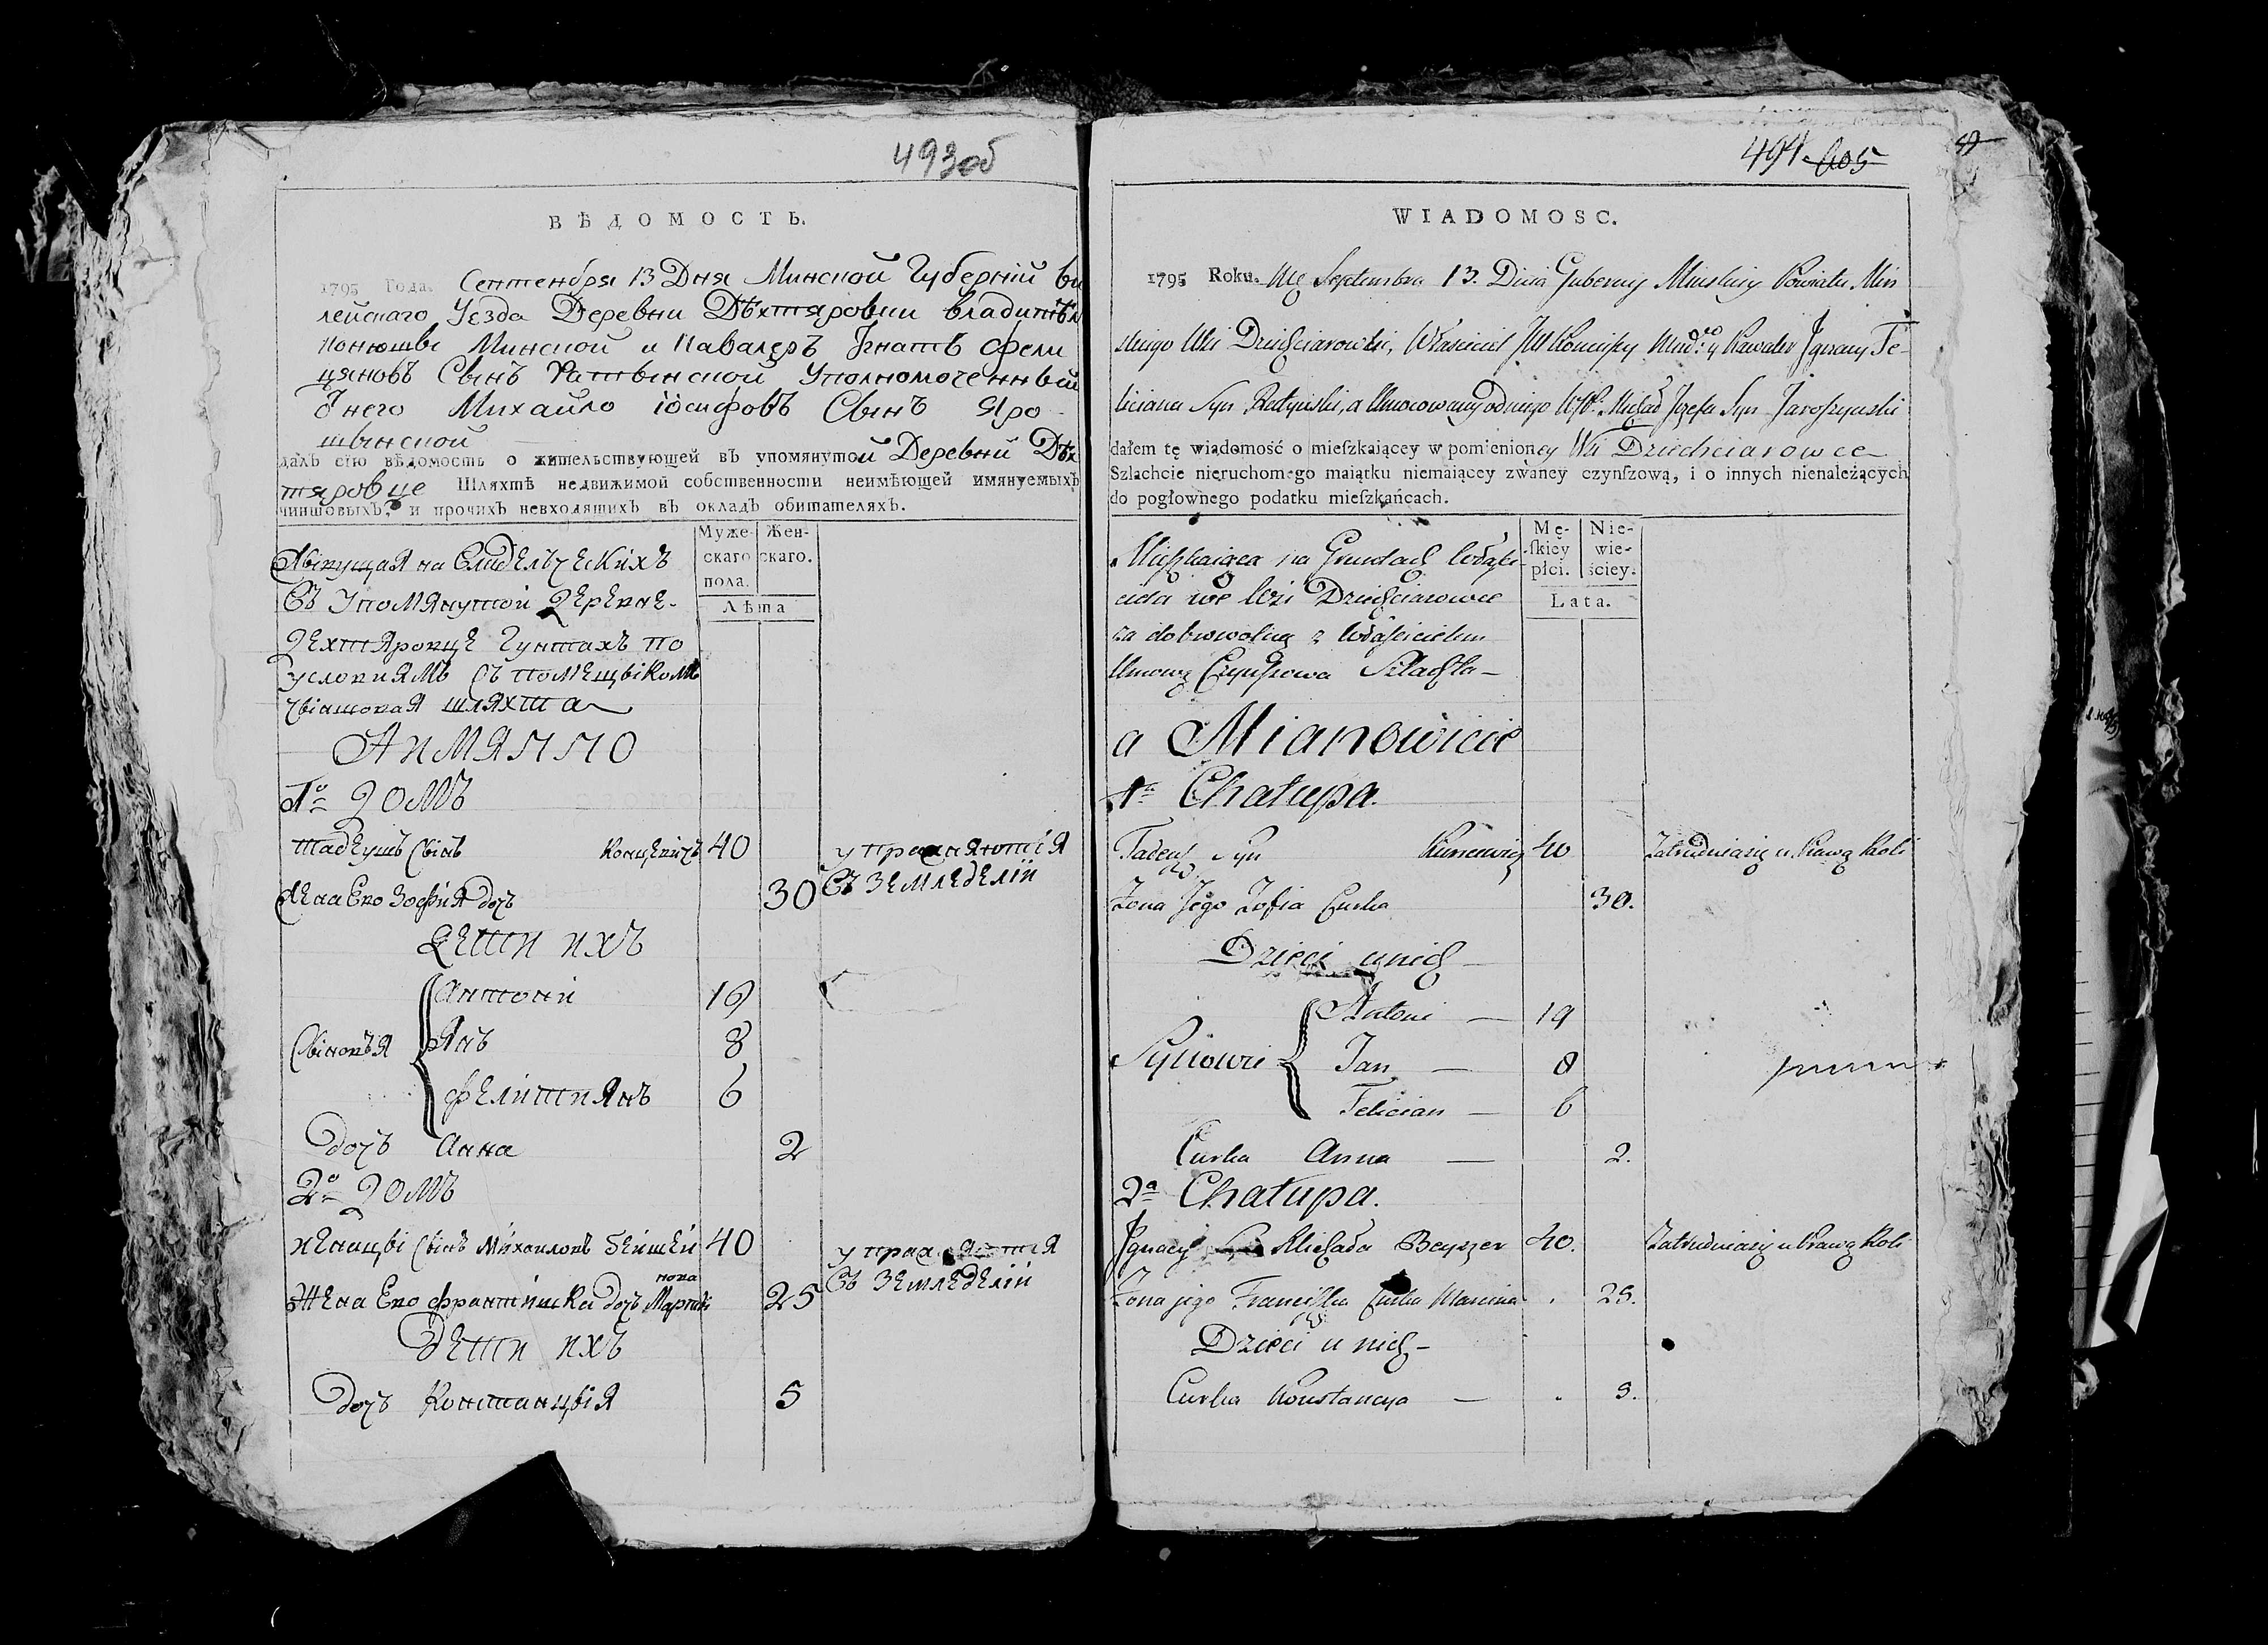 493об
ВѢДОМОСТЬ.
1795 Года. Септенбря 13 Дня Минской Губерній ви
лейскаго Уезда Деревни Дѣхтяровки владитѣл
конюшы Минской и Кавалеръ Игнатъ Фели
цяновъ Сынъ Ратынской Уполномоченный
Михайло Іосифовъ Сынъ Яро
шынской
далъ сію вѣдомость о жительствующей въ упомянутой Деревни Дѣх
тяровце Шляхтѣ недвижимой собственности неимѣющей имянуемыхъ
чиншовыхъ, и прочихъ невходящихъ въ окладъ обитателяхъ.
Муже- скаго пола.
Жен- скаго.
Лѣта
на
Съ Упомянутой
Дехтяровце Гунтахъ по
условиямъ съ помещыкомъ
шляхта
Аимянно
1о Домъ
тадеушъ Сынъ 40 упражняются
Жена Ево Зофия дочъ 30 Въ Земледелiи
Дети ихъ
Антони 19
Сыновъя Янъ 8
фелитиянъ 6
Дочъ Анна 2
2о Домъ
Сынъ Михаиловъ 40 упражняются
Жена Ево франтишка дочъ 25 Въ Земледелiи
Дети ихъ
Дочъ Констанцыя 5
494 605
WIADOMOSC.
1795 Roku. Mca Septembra 13. Dnia Guberny Minskiey Powiatu Min
skiego Wsi Dziechciarowki, Właściciel JW Koniuszy Kawaler Jgnacy Fe-
liciana Syn Ratynski, a Umocowany od niego Michał Jozefa Syn Jaroszynski
dałem tę wiadomość o mieſzkaiącey w pomienioney Wsi Dziechciarowce
Szlachcie nieruchomego maiątku niemaiącey zwaney czynſzową, i o innych nienależących
do pogłownego podatku mieſzkańcach.
Mę- ſkiey płci.
Nie- wie- ściey.
Lata.
Mieszkaiąca na Gruntach Właści-
ciela we Wsi Dziechciarowce
za dobrowolną z Właścicielem
Umową Czynszowa Szlachta –
a Mianowicie
1a Chałupa.
Tadeusz Syn 40 Zatrudniaią u Prawą Roli
Zona Jego Zofia Curka 30.
Dzieci u nich –
Antoni — 19
Synowie Jan — 8
Felician — 6
Curka Anna — 2.
2a Chałupa.
Jgnacy Syn Michała Beyzer 40. Zatrudniaią u Prawą Roli
Zona jego Franciszka Curka Marcina . 25.
Dzieci u nich –
Curka Konstancya — . 5.